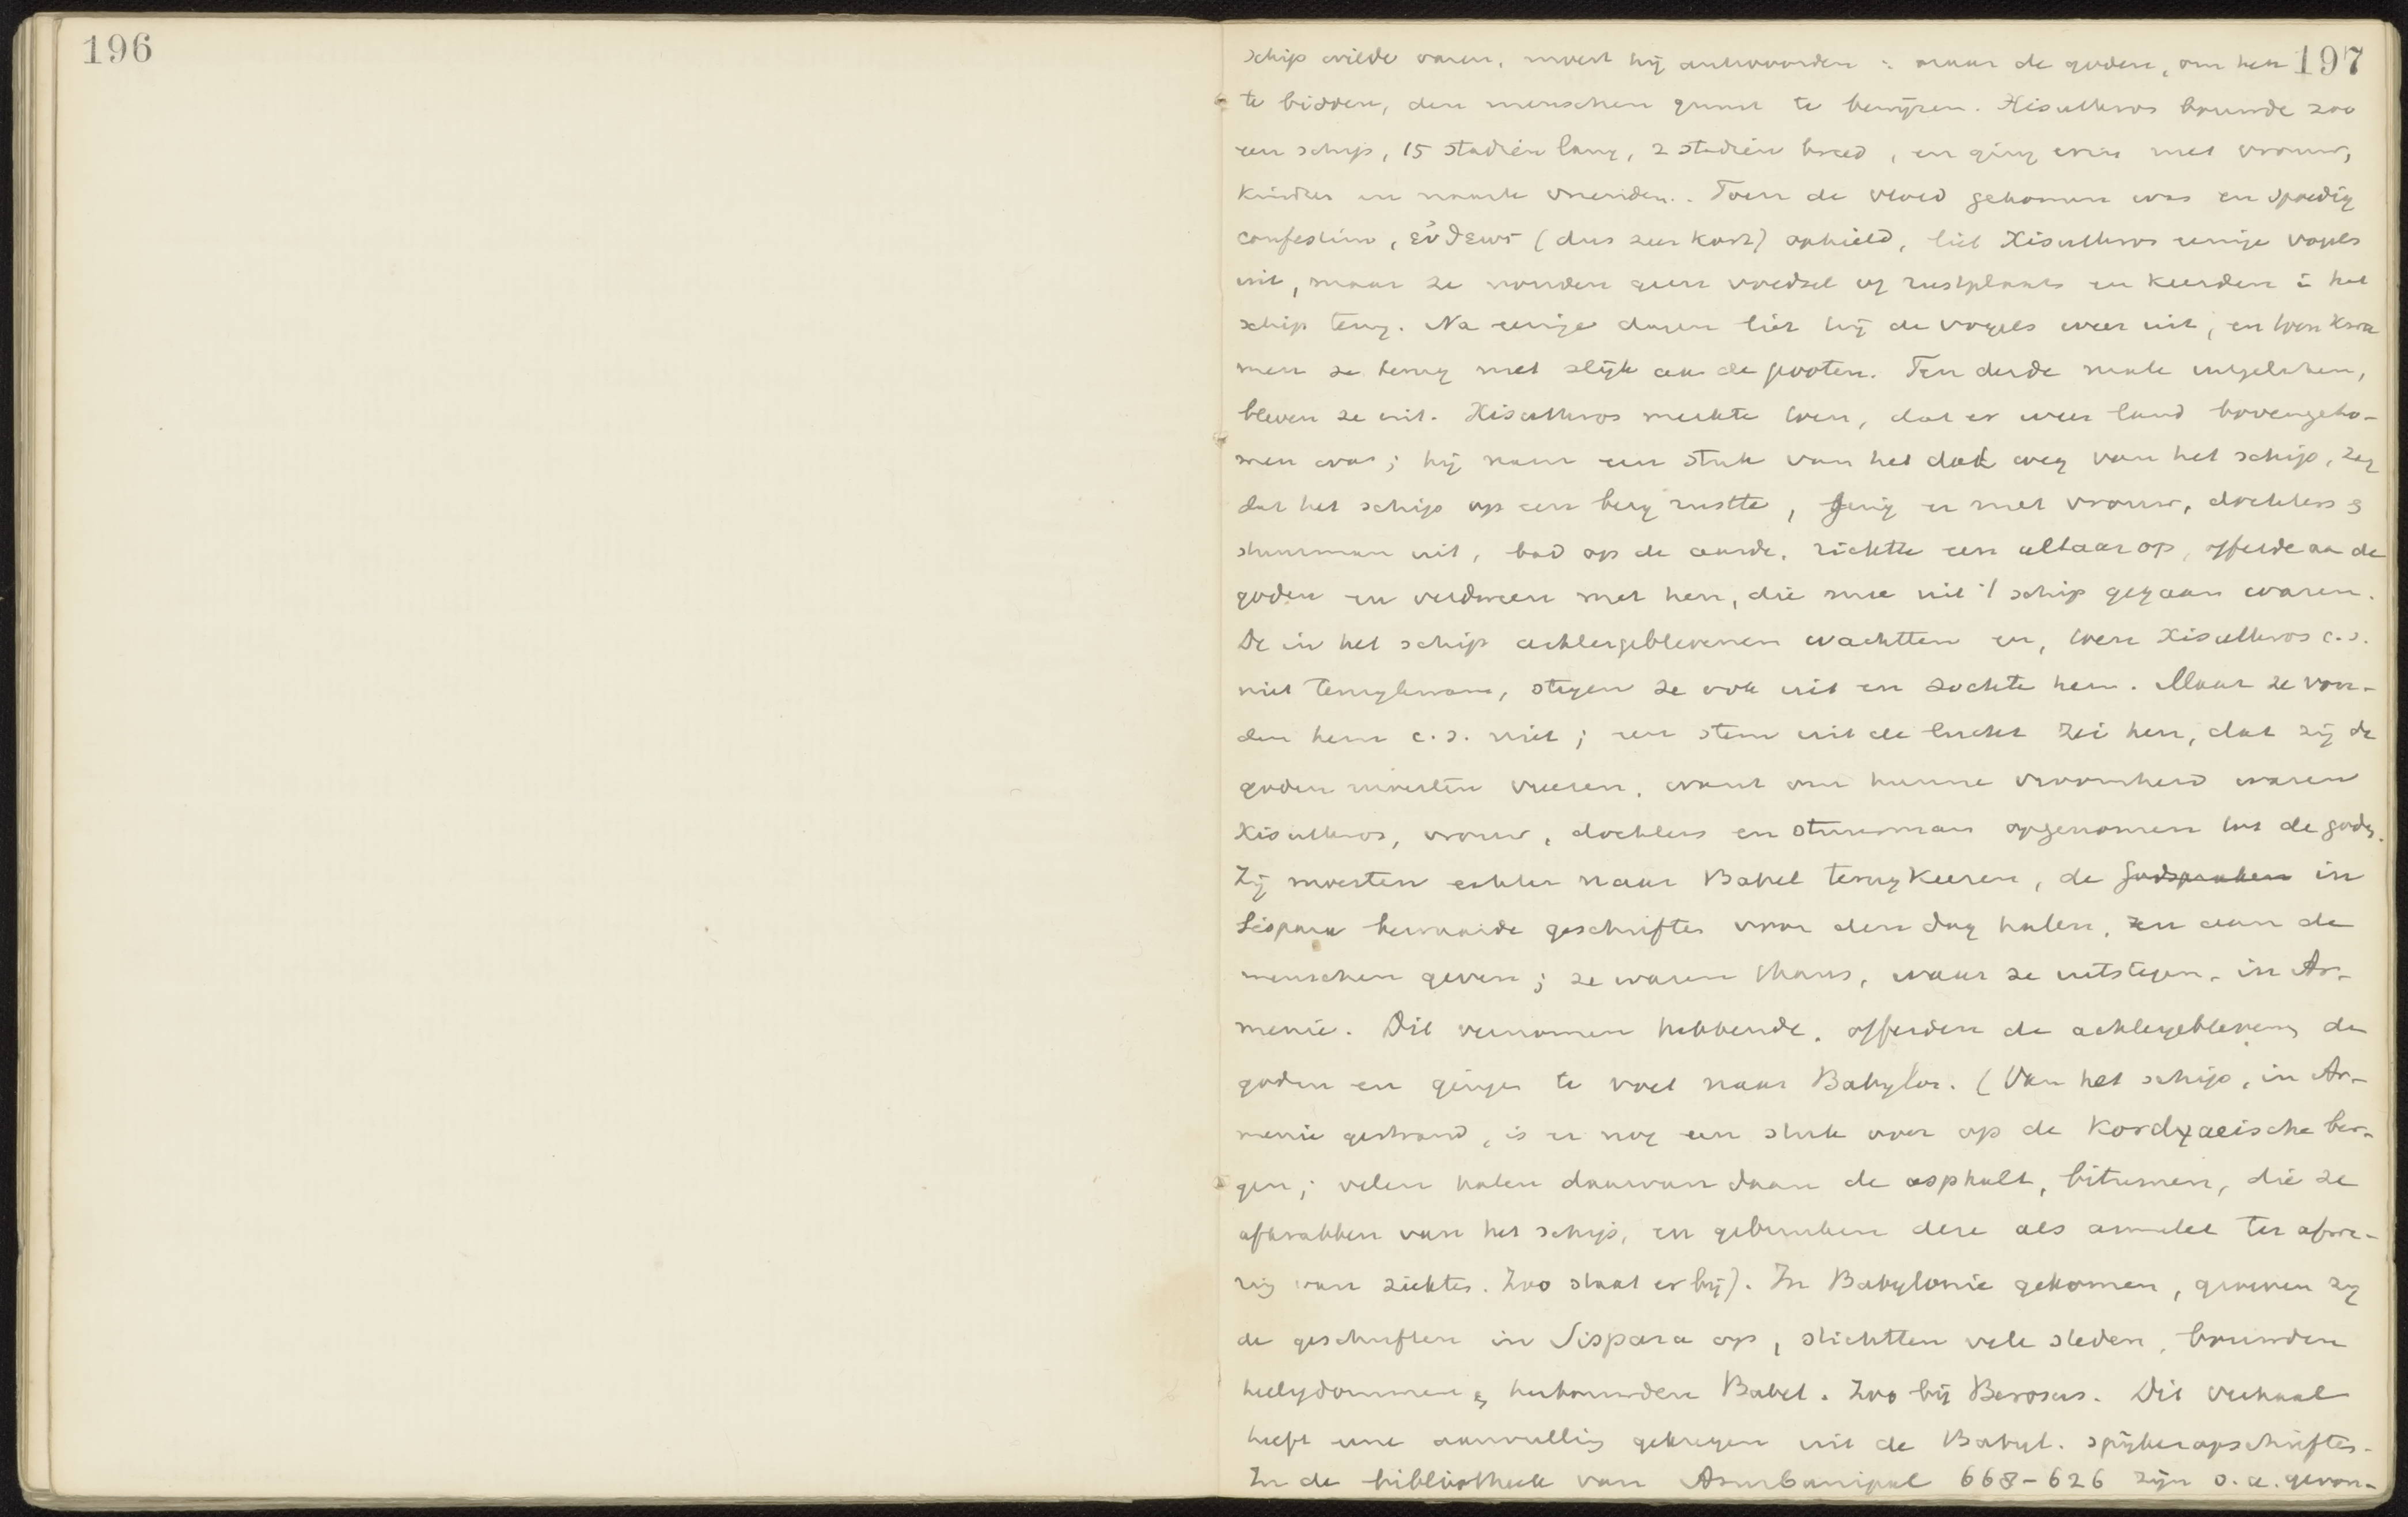 196
197
schip wilde varen, moest hij antwoorden: naar de goden, om hen
te bidden, den menschen gunst te bewijzen. Xisuthros bouwde zoo
een schip, 15 stadiën lang, 2 stadiën breed, en ging erin met vrouw,
kinders en naaste vrienden. Toen de vloed gekomen was en spoedig
confestim, εὐθέως (dus zeer kort) ophield, liet Xisuthros eenige vogels
uit, maar ze vonden geen voedsel of rustplaats en keerden i het
schip terug. Na eenige dagen liet hij de vogels weer uit, en toen kwa
men ze terug met slijk aan de pooten. Ten derde male uitgelaten,
bleven ze uit. Xisuthros merkte toen, dat er weer land bovengeko-
men was; hij nam een stuk van het dak weg van het schip, zag
dat het schip op een berg rustte, ging er met vrouw, dochters &
stuurman uit, bad op de aarde, richtte een altaar op, offerde aan de
goden en verdween met hen, die mee uit 't schip gegaan waren.
De in het schip achtergeblevenen wachtten en, toen Xisuthros c.s.
niet terugkwam, stegen ze ook uit en zochte hem. Maar ze von-
den hem c.s. niet; een stem uit de lucht zei hen, dat zij de
goden moesten vreezen, want om hunne vroomheid waren
Xisuthros, vrouw, dochters en stuurman opgenomen tot de godn.
Zij moesten echter naar Babel terugkeeren, de godspraken in
Sispara bewaarde geschriften voor den dag halen, en aan de
menschen geven; ze waren thans, waar ze uitstegen, in Ar-
menie. Dit vernomen hebbende, offerden de achtergeblevenen de
goden en gingen te voet naar Babylon. (Van het schip, in Ar-
menie gestrand, is er nog een stuk over op de Kordyaeische ber-
gen; velen halen daarvan daan de asphalt, bitumen, die ze
afkrabben van het schip, en gebruiken deze als amulet ter afwe-
ring van ziektes. Zoo staat er bij). In Babylonie gekomen, groeven zij
de geschriften in Sispara op, stichtten vele steden, bouwden
heiligdommen & herbouwden Babel. Zoo bij Berosus. Dit verhaal
heeft eene aanvulling gekregen uit de Babyl. spijkeropschriften.
In de bibliotheek van Asurbanipal 668-626 zijn o.a. gevon-